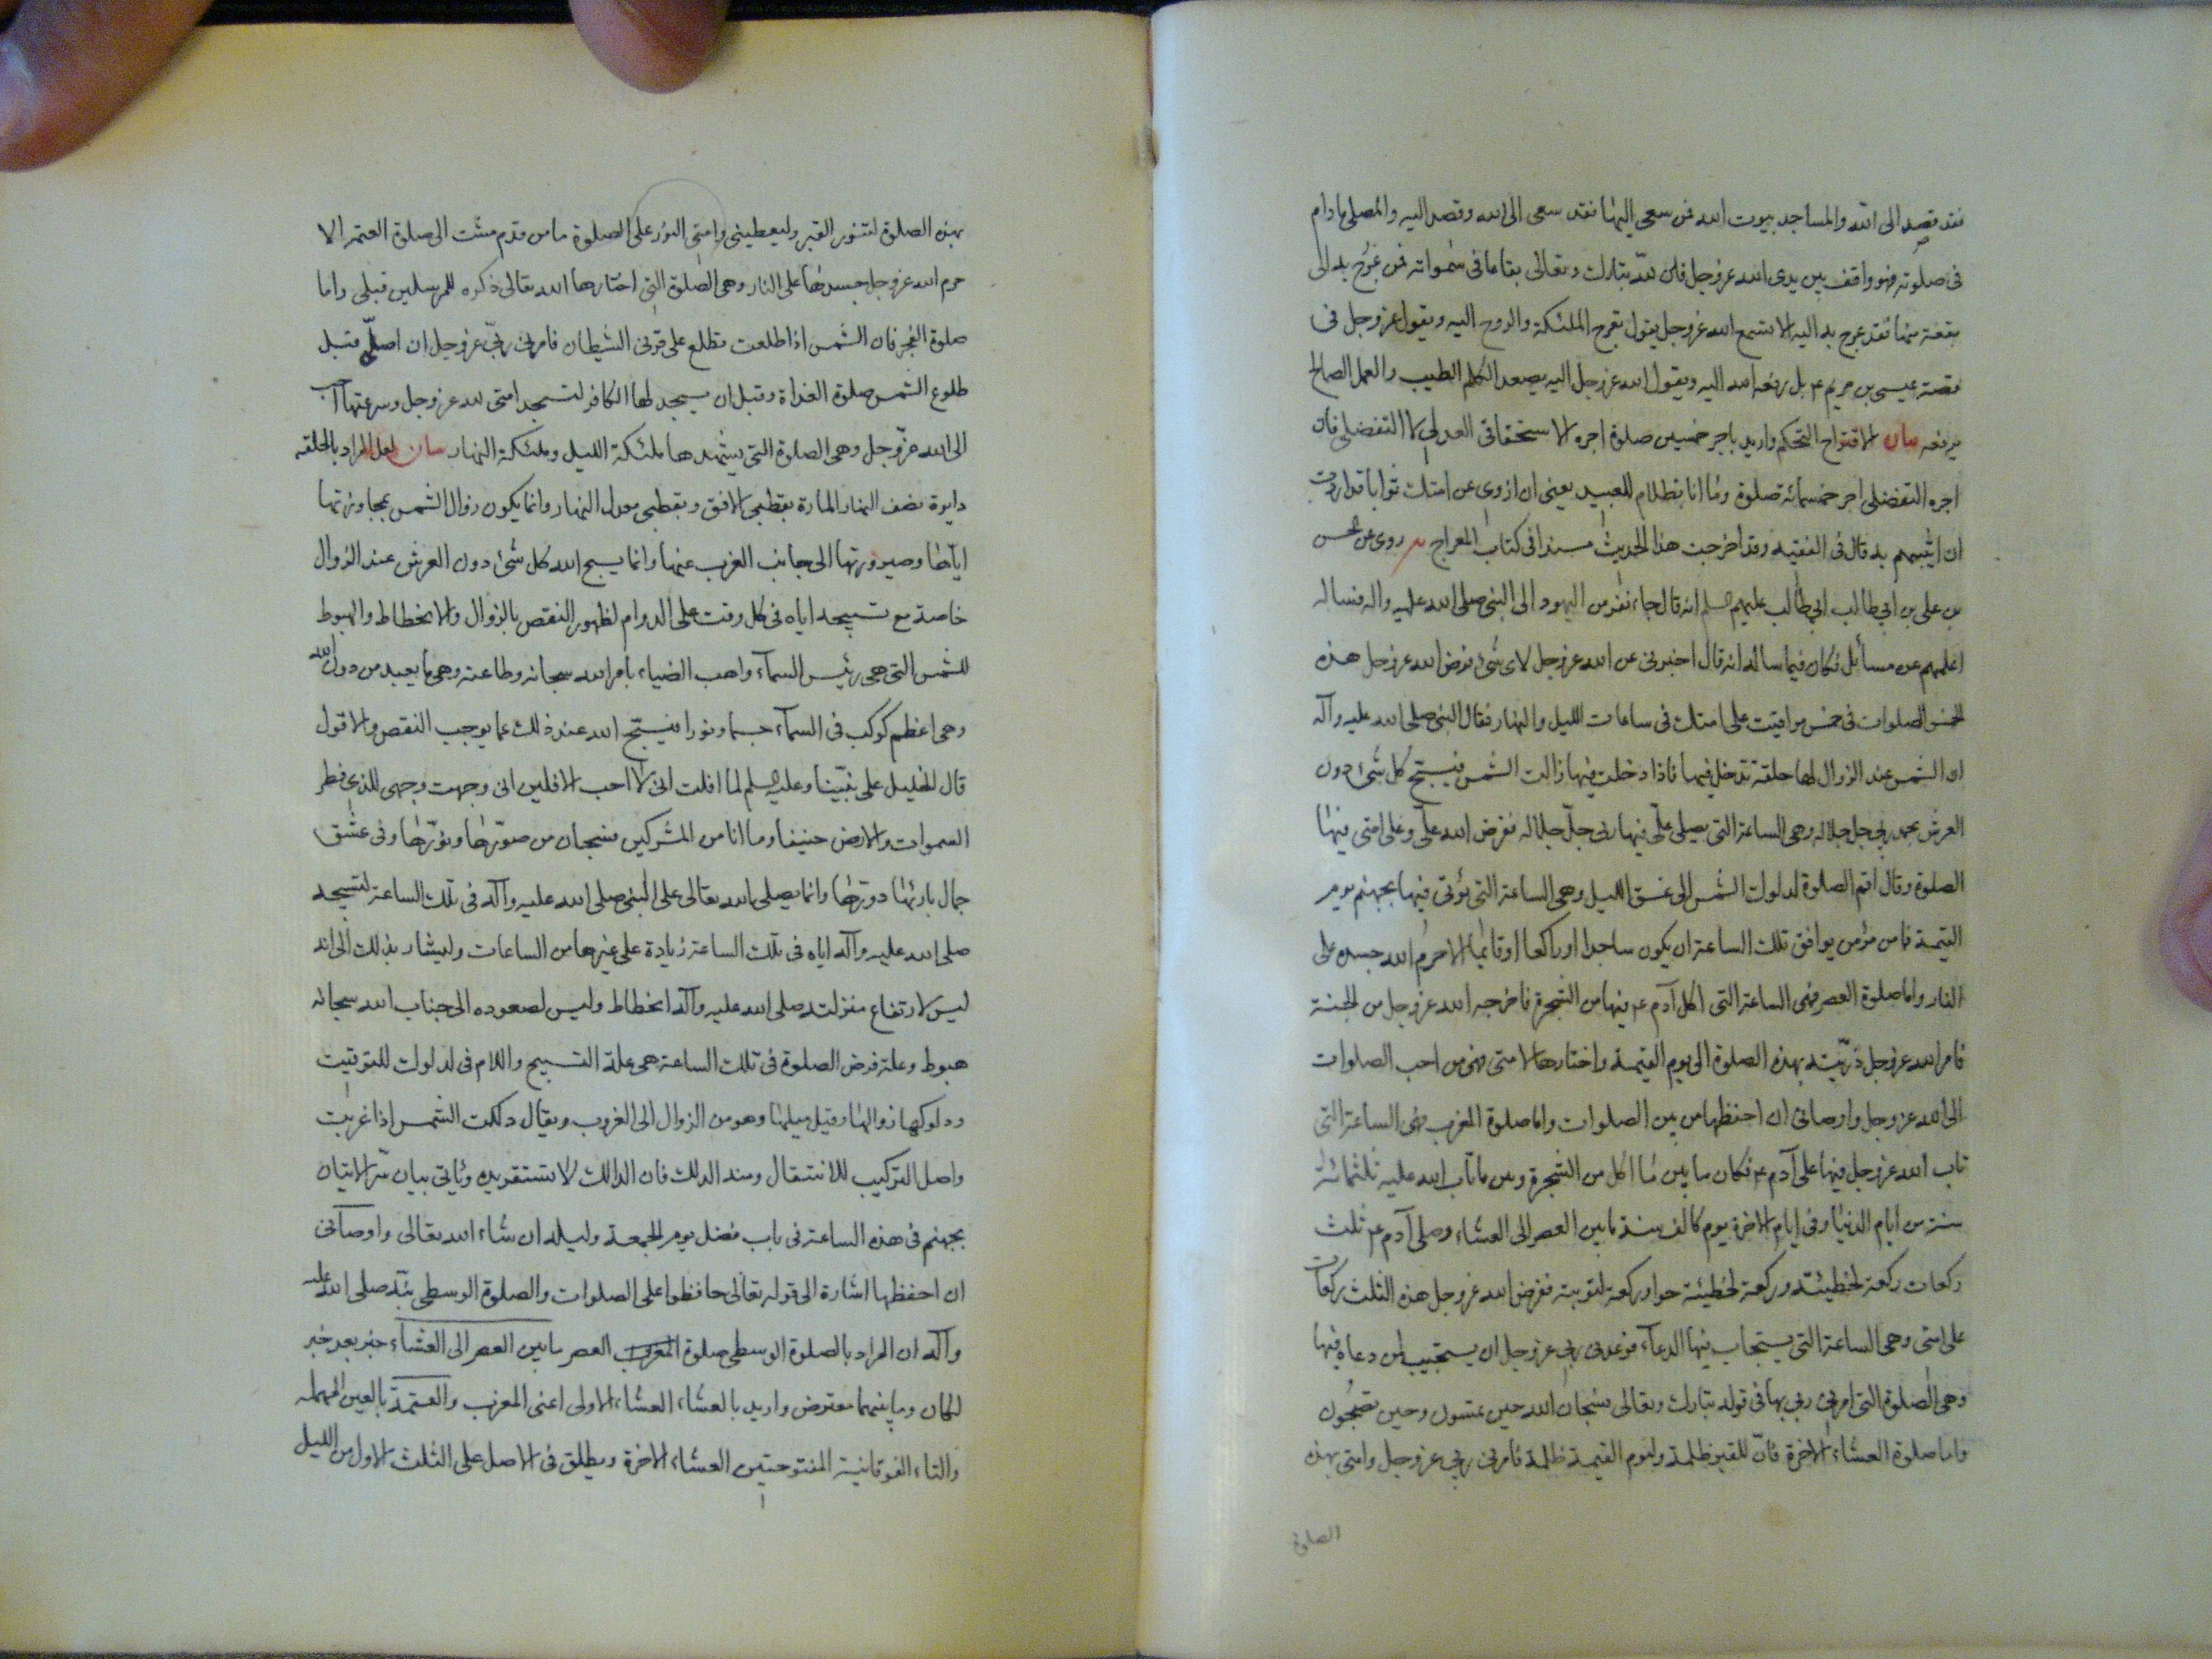 فقد قصد الى الله والمساجد بيوت الله فمن سعى اليها فقد سعى الى الله وقصد اليه والمصلي مادام
فى صلوته فهو واقف بين يدى الله عزوجل فان لله تبارك وتعالى بقاعا فى سمواته فمن عرج به الى
بقعة منها فقد عرج به اليه الا تسمع الله عزوجل يقول تعرج الملئكة والروح اليه ويقول عزوجل فى
قصة عيسى بن مريم ع بل رفعه الله اليه ويقول الله عزوجل اليه يصعد الكلم الطيب والعمل الصالح
يرفعه بيان الاقتراح التحكم واريد باجر خمسين صلوة اجره الاستحقاقى العدلى لا التفضلى فان
اجره التفضلى اجر خمسمائة صلوة وما انا بظلام للعبيد يعنى ان ازوى عن امتك ثوابا قد اردت
ان اثيبهم به قال فى الفقيه وقد اخرجت هذا الحديث مسندا فى كتاب المعراج يه روى عن الحسن
بن على بن ابي طالب ابي طالب عليهم السلم انه قال جاء نفر من اليهود الى النبى صلى الله عليه واله فساله
اعلمهم عن مسائل فكان فيما ساله انه قال اخبرنى عن الله عزوجل لاى شئ فرض الله عزوجل هذه
الخمس الصلوات فى خمس مواقيت على امتك فى ساعات الليل والنهار فقال النبى صلى الله عليه وآله
ان الشمس عند الزوال لها حلقة تدخل فيها فاذا دخلت فيها زالت الشمس فيسبح كل شئ دون
العرش بحمد ربى جل جلاله وهى الساعة التى يصلى علىّ فيها ربى جلّ جلاله ففرض الله علىّ وعلى امتى فيها
الصلوة وقال اقم الصلوة لدلوك الشمس الى غسق الليل وهى الساعة التى يؤتى فيها بجهنم يوم
القيمة فما من مؤمن يوافق تلك الساعة ان يكون ساجدا او راكعا او قائما الا حرم الله جسده على
النار واما صلوة العصر فهى الساعة التى اكل آدم ع فيها من الشجرة فاخرجه الله عزوجل من الجنة
فامر الله عزوجل ذرّيته بهذه الصلوة الى يوم القيمة واختارها لامتى فهى من احب الصلوات
الى الله عزوجل واوصانى ان احفظها من بين الصلوات واما صلوة المغرب فهى الساعة التى
تاب الله عزوجل فيها على آدم ع فكان ما بين ما اكل من الشجرة وبين ما تاب الله عليه ثلثمائة
سنة من ايام الدنيا وفى ايام الاخرة يوم كالف سنة مابين العصر الى العشاء وصلى آدم ع ثلث
ركعات ركعة لخطيئته وركعة لخطيئة حوا وركعة لتوبته ففرض الله عزوجل هذه الثلث ركعات
على امتى وهى الساعة التى يستجاب فيها الدعآء فوعدنى ربى عزوجل ان يستجيب لمن دعاه فيها
وهى الصلوة التى امرنى ربى بها فى قوله تبارك وتعالى فسبحان الله حين تمسون وحين تصبحون
واما صلوة العشاء الاخرة فانّ للقبر ظلمة وليوم القيمة ظلمة فامرنى ربى عزوجل وامتى بهذه
الصلوة
بهذه الصلوة لتنور القبر وليعطينى وامتى النور على الصلوة ما من قدم مشت الى صلوة العتمة الا
حرم الله عزوجل جسدها على النار وهى الصلوة التى اختارها الله تعالى ذكره للمرسلين قبلى واما
صلوة الفجر فان الشمس اذا طلعت تطلع على قرنى الشيطان فامرنى ربىّ عزوجل ان اصلّى قبل
طلوع الشمس صلوة الغداة وقبل ان يسجد لها الكافر لتسجد امتى لله عزوجل وسرعتها احب
الى الله عزّوجل وهى الصلوة التى يشهدها ملئكة الليل وملئكة النهار بيان لعل المراد بالحلقة
دايرة نصف النهار المارة بقطبى الافق وبقطبى معدل النهار وانما يكون زوال الشمس بمجاوزتها
ايّاها وصيرورتها الى جانب الغرب عنها وانما يسبح الله كل شئ دون العرش عند الزوال
خاصة مع تسبيحه اياه فى كل وقت على الدوام لظهور النقص بالزوال والانحطاط والهبوط
للشمس التى هى رئيس السمآء واهب الضياء بامر الله سبحانه وطاعته وهى ما يعبد من دون الله
وهى اعظم كوكب فى السمآء جسما ونورا فيسبّح الله عند ذلك عما يوجب النقص والافول
قال الخليل على نبيّنا وعليه السلم لما افلت انى لا احب الافلين انى وجهت وجهى للذى فطر
السموات والارض حنيفا وما انا من المشركين فسبحان من صوّرها ونوّرها وفى عشق
جمال بارئها دورّها وانما يصلى الله تعالى على النبى صلى الله عليه وآله فى تلك الساعة لتسبيحه
صلى الله عليه وآله اياه فى تلك الساعة زيادة على غيرها من الساعات وليشار بذلك الى انه
ليس لارتفاع منزلته صلى الله عليه وآله انحطاط وليس لصعوده الى جناب الله سبحانه
هبوط وعلة فرض الصلوة فى تلك الساعة هى علة التسبيح واللام فى لدلوك للتوقيت
ودلوكها زوالها وقيل ميلها وهو من الزوال الى الغروب ويقال دلكت الشمس اذا غربت
واصل التركيب للانتقال ومنه الدلك فان الدالك لا تستقر يده وياتى بيان سّر الاتيان
بجهنم فى هذه الساعة فى باب فضل يوم الجمعة وليله ان شاء الله تعالى واوصآنى
ان احفظها اشارة الى قوله تعالى حافظوا على الصلوات والصلوة الوسطى نبّه صلى الله عليه
وآله ان المراد بالصلوة الوسطى صلوة المغرب العصر مابين العصر الى العشآء خبر بعد خبر
لكان وما بينهما معترض واريد بالعشاء العشاء الاولى اعنى المغرب والعتمة بالعين المهملة
والتاء الفوقانية المفتوحتين العشاء الاخرة ويطلق فى الاصل على الثلث الاول من الليل